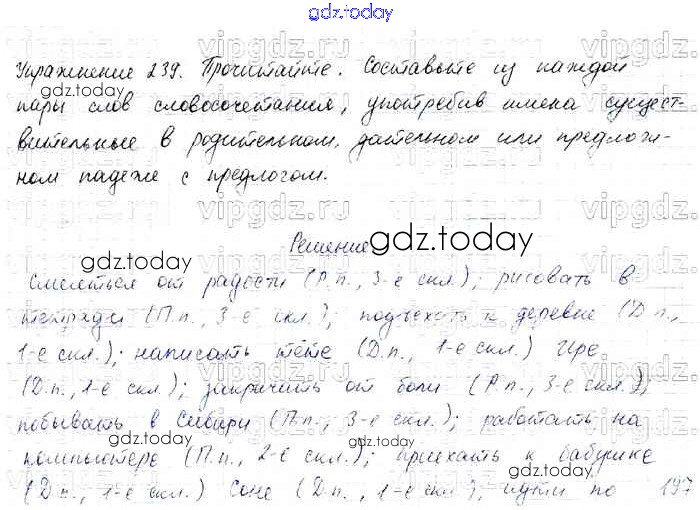 gdz.today
Упражнение 239. Прочитайте. Составьте из каждой
пары слов словосочетания, употребив имена сущест-
вительные в родительном, дательном или предлож-
ном падеже с предлогом.
Решение gdz.today
gdz.today
Смеяться от радости (Р.п., 3-е скл.); рисовать в
тетради (П.п., 3-е скл.); подъехать к деревне (Д.п.,
1-е скл.); написать тёте (Д.п., 1-е скл.) Ире
(Д.п., 1-е скл.); закричать от боли (Р.п., 3-е скл.);
побывать в Сибири (П.п., 3-е скл.); работать на
gdz.today gdz.today
компьютере (П.п., 2-е скл.); приехать к бабушке
(Д.п., 1-е скл.) Соне (Д.п., 1-е скл.), идти по 197
gdz.today
vipgdz.ru vipgdz.ru vipgdz.ru